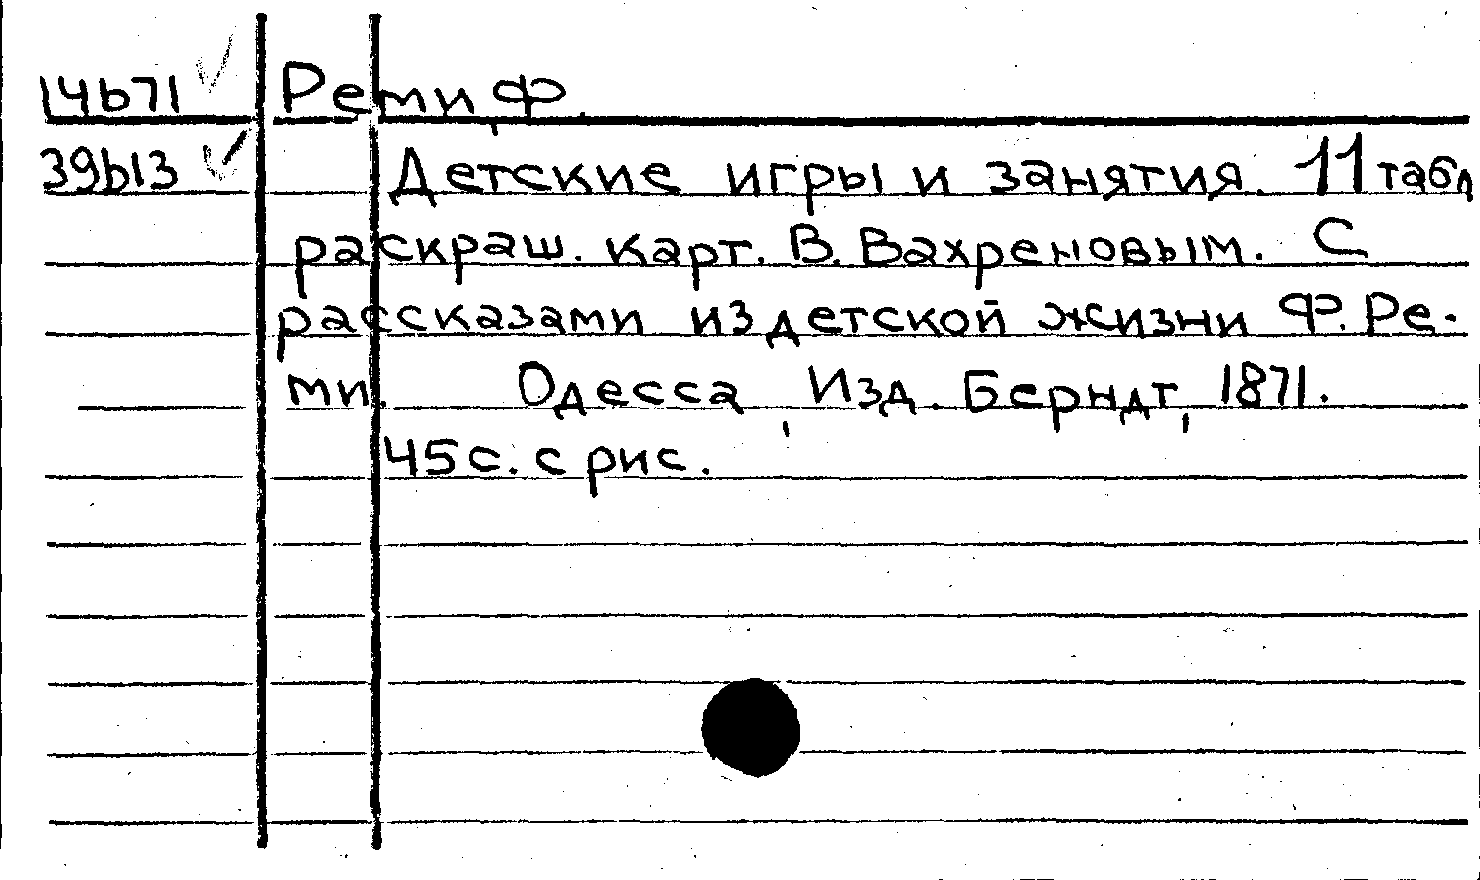 14b71 Реми, Ф.
39b13 Детские игры и занятия. 11 табл
раскраш. карт. В. Вахреновым. С
рассказами из детской жизни Ф. Ре-
ми. Одесса, Изд. Берндт, 1871.
45 с. с рис.